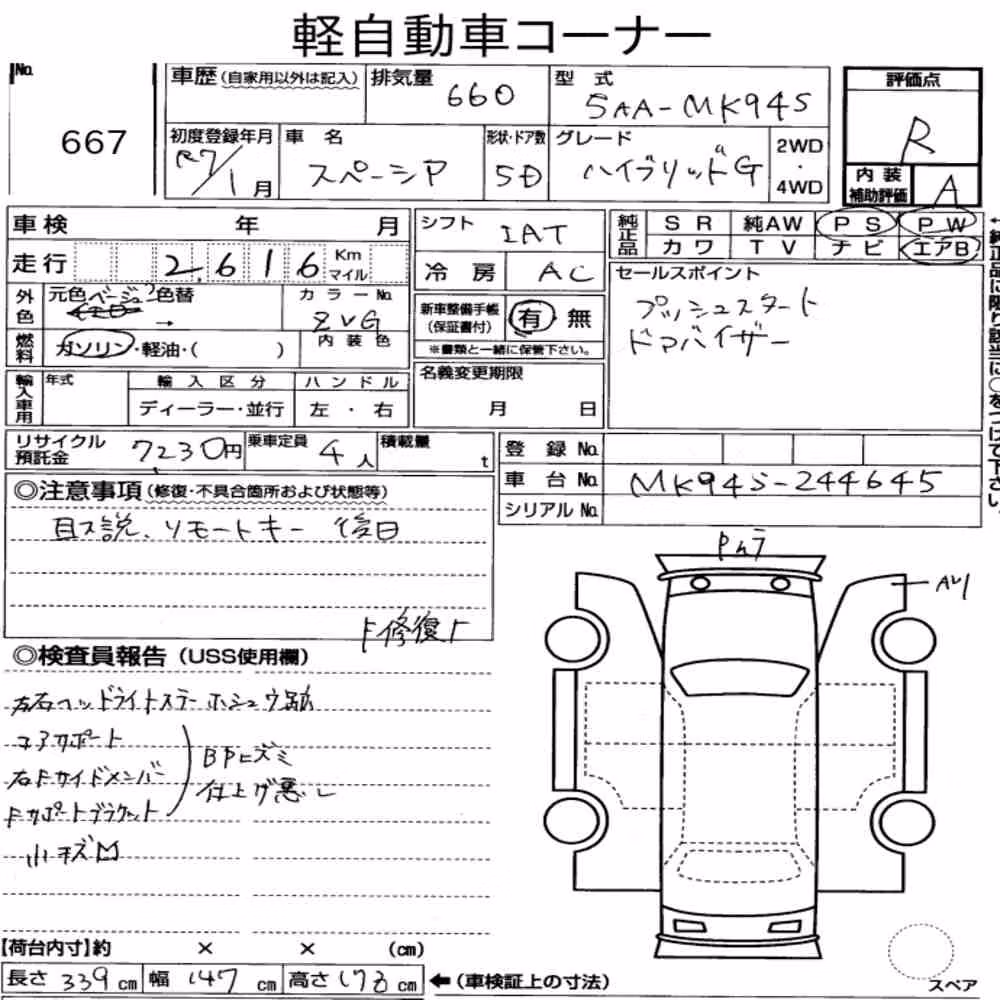 軽自動車コーナー
No. 667
車歴 (自家用以外は記入)
排気量 660
型式 5AA-MK94S
評価点 R
内装補助評価 A
初度登録年月 R7/1月
車名 スペーシア
形状・ドア数 5D
グレード ハイブリッドG
2WD・4WD
車検 年 月
走行 2,616 Km マイル
シフト IAT
冷房 AC
純正品 SR 純AW PS PW
カワ TV ナビ エアB
←純正品に限り該当に○をつけて下さい。
外色 元色 ベージュ 色替 →
カラーNo. ZVG
内装色
燃料 ガソリン・軽油・( )
新車整備手帳(保証書付) 有 無
※書類と一緒に保管下さい。
セールスポイント
プッシュスタート
ドアバイザー
輸入車用 年式 輸入区分 ハンドル
ディーラー・並行 左・右
名義変更期限
月 日
リサイクル預託金 7230円
乗車定員 4人
積載量 t
登録No.
車台No. MK94S-244645
シリアルNo.
◎注意事項 (修復・不具合箇所および状態等)
取説、リモートキー 後日
F修復F
◎検査員報告 (USS使用欄)
左右ヘッドライトステー ホシュウ跡
コアサポート
右Fサイドメンバー
Fサポートブラケット
BPヒズミ
仕上げ悪し
小キズ凹
Pムラ
A1
【荷台内寸】約 × × (cm)
長さ 339 cm 幅 147 cm 高さ 178 cm ←(車検証上の寸法)
スペア